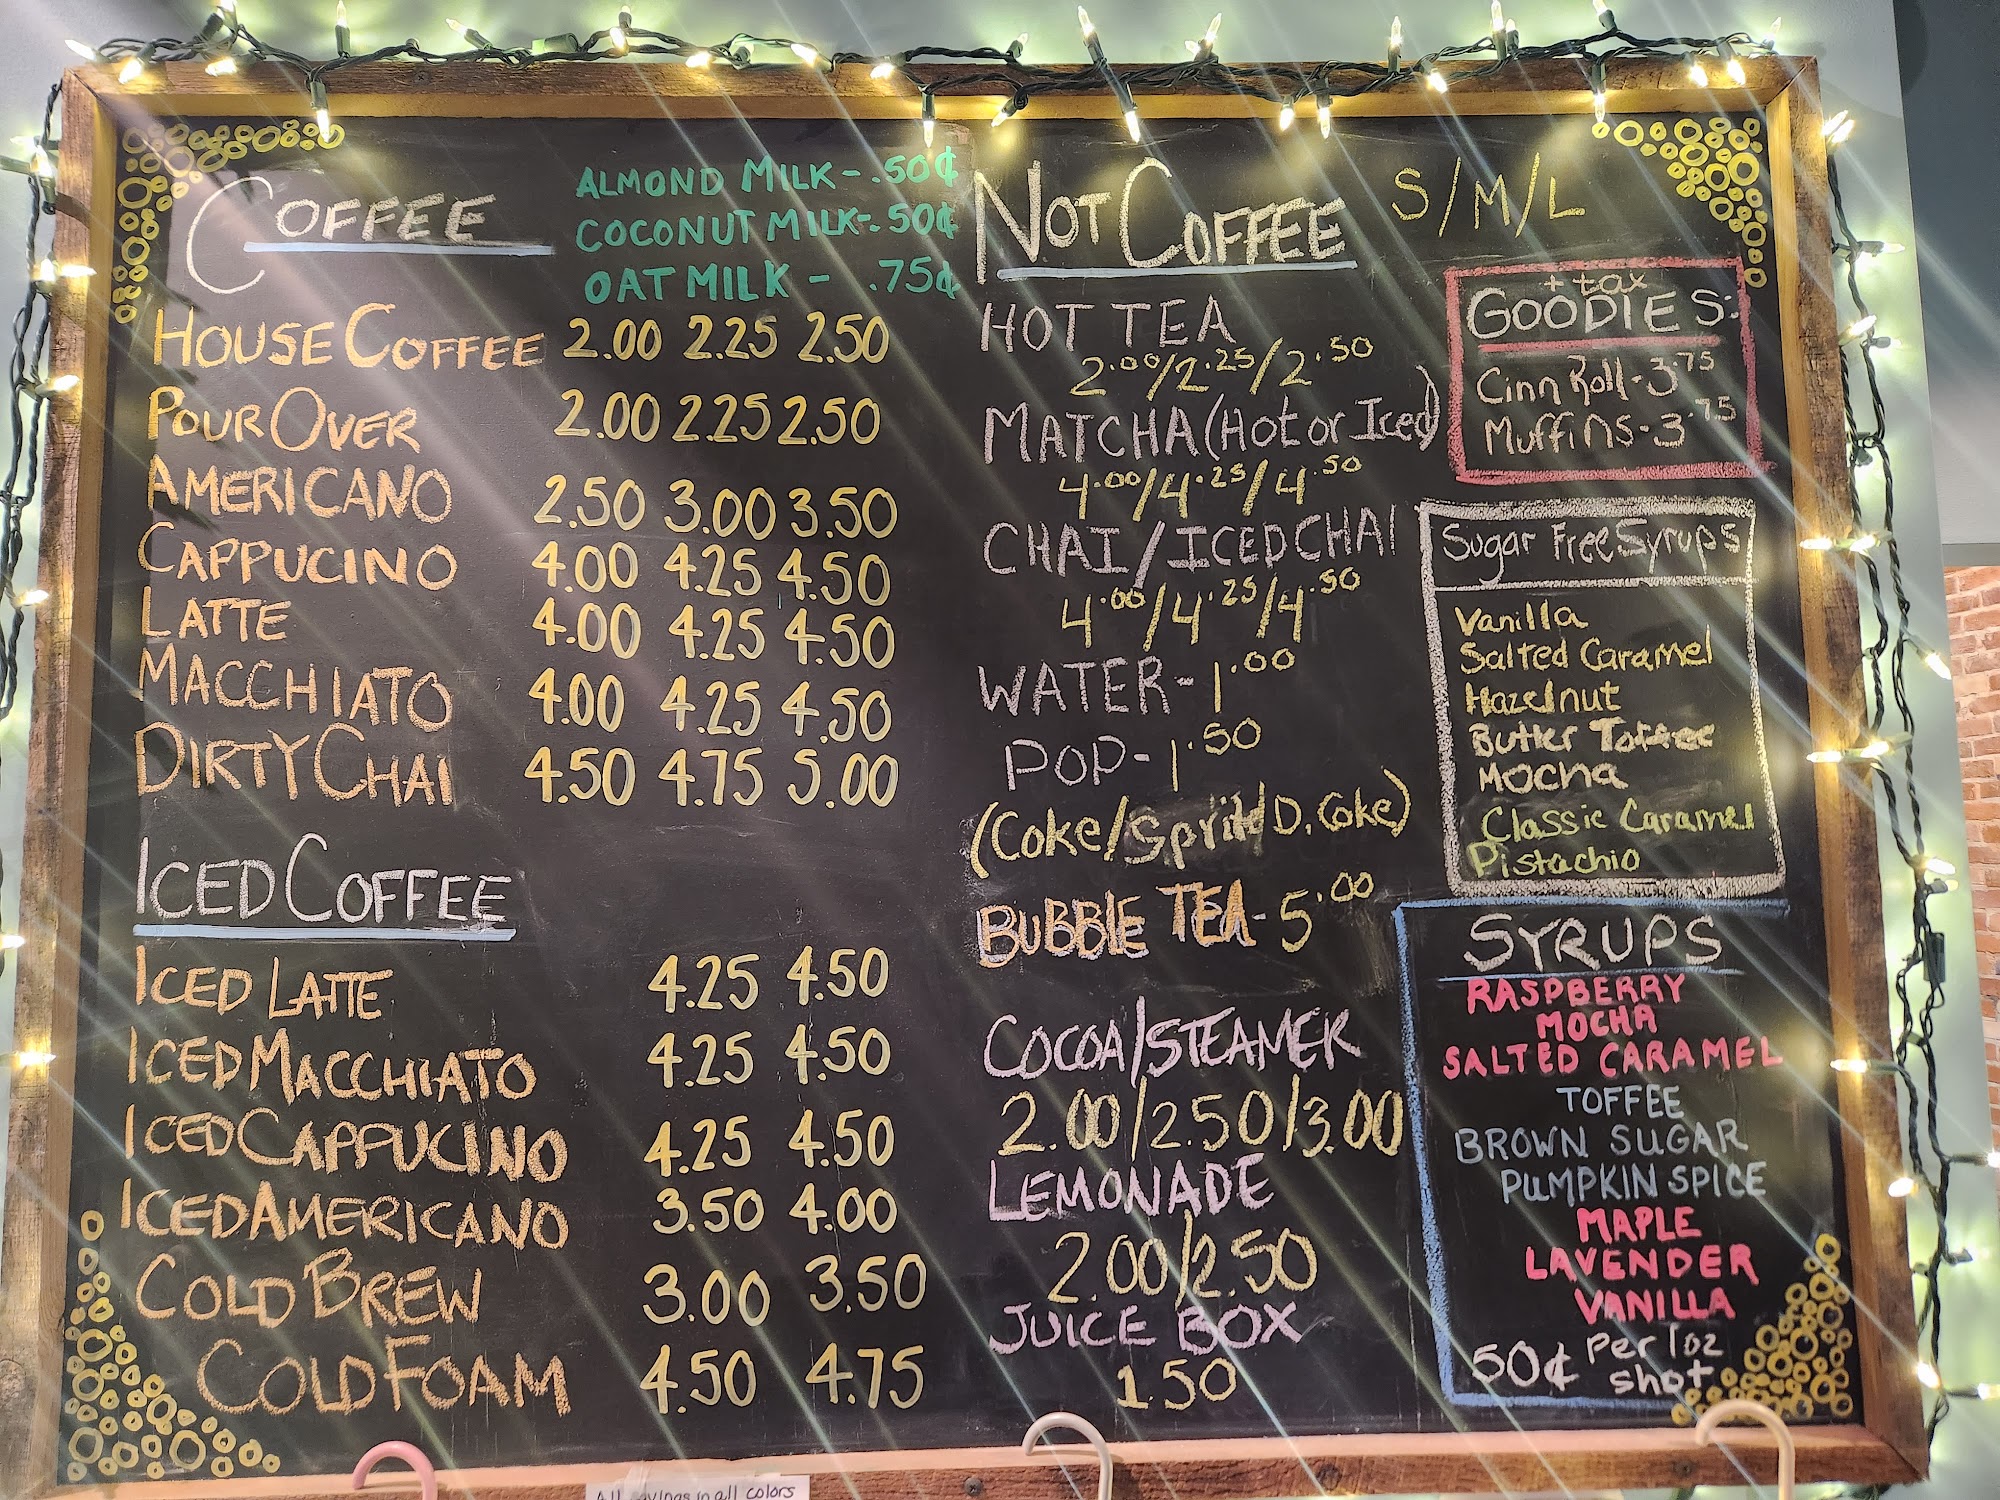 COFFEE
ALMOND MILK - .50¢
COCONUT MILK - .50¢
OAT MILK - .75¢
HOUSE COFFEE 2.00 2.25 2.50
POUR OVER 2.00 2.25 2.50
AMERICANO 2.50 3.00 3.50
CAPPUCINO 4.00 4.25 4.50
LATTE 4.00 4.25 4.50
MACCHIATO 4.00 4.25 4.50
DIRTY CHAI 4.50 4.75 5.00
ICED COFFEE
ICED LATTE 4.25 4.50
ICED MACCHIATO 4.25 4.50
ICED CAPPUCINO 4.25 4.50
ICED AMERICANO 3.50 4.00
COLD BREW 3.00 3.50
COLD FOAM 4.50 4.75
NOT COFFEE S/M/L
HOT TEA
2.00/2.25/2.50
MATCHA (Hot or Iced)
4.00/4.25/4.50
CHAI/ICED CHAI
4.00/4.25/4.50
WATER - 1.00
POP - 1.50
(Coke/Sprite/D. Coke)
BUBBLE TEA - 5.00
COCOA/STEAMER
2.00/2.50/3.00
LEMONADE
2.00/2.50
JUICE BOX
1.50
+ tax
GOODIES:
Cinn Roll - 3.75
Muffins - 3.75
Sugar Free Syrups
Vanilla
Salted Caramel
Hazelnut
Butter Toffee
Mocha
Classic Caramel
Pistachio
SYRUPS
RASPBERRY
MOCHA
SALTED CARAMEL
TOFFEE
BROWN SUGAR
PUMPKIN SPICE
MAPLE
LAVENDER
VANILLA
50¢ per 1oz
shot
in all colors